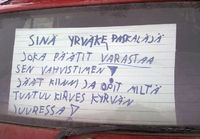 SINÄ YRVÄKE PASKALÄJÄ
JOKA PÄÄTIT VARASTAA
SEN VAHVISTIMEN
JÄÄT KIINNI JA OPIT MILTÄ
TUNTUU KIRVES KYRVÄN
JUURESSA